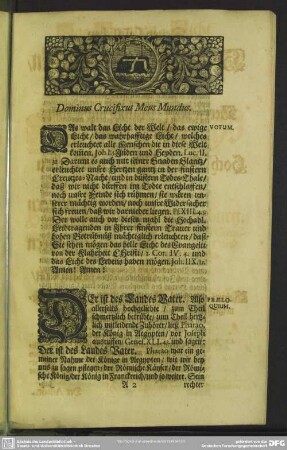 Dominus Crucifixus Meus Mundus.
VOTUM.
DAs walt das Licht der Welt / das ewige
Licht / das wahrhafftige Licht / welches
erleuchtet alle Menschen die in diese Welt
kommen. Joh. I. Jüden und Heyden. Luc. II.
erleuchtet unser Hertzen gantz in der finstern
Creutzes-Nacht / und in düstern Todes-Thale /
daß wir nicht dörffen im Tode entschlaffen /
noch unser Feinde sich rühmen / sie wären un-
serer mächtig worden / noch unsre Widersacher
sich freuen / daß wir darnieder liegen. Ps. XIII. 4.
Der wolle auch vor diesen
Leidtragenden in Ihrer finstern Trauer und
hohen Betrübniß mächtiglich erleuchten / daß
Sie sehen mögen das helle Licht des Evangelii
von der Klarheit Christi / 2 Cor. IV. 4. und
das Licht des Lebens haben mögen Joh. IIX. 12.
Amen! Amen!
PRÆLO-
QUIUM.
DEr ist des Landes Vater. Also
allerseits hochgeliebte / zum Theil
schmertzlich betrübte / zum Theil hertz-
lich mitleidende Zuhörer / ließ Pharao,
der König in Aegypten / vor Joseph
ausruffen Genes. XLI. 43. und sagen:
Der ist des Landes Vater. Pharao war ein ge-
meiner Nahme der Könige in Aegypten / wie wir hey
uns zu sagen pflegen: der Römische Käyser / der Römi-
sche König / der König in Franckreich / und so weiter. Sein
A 2 rechter